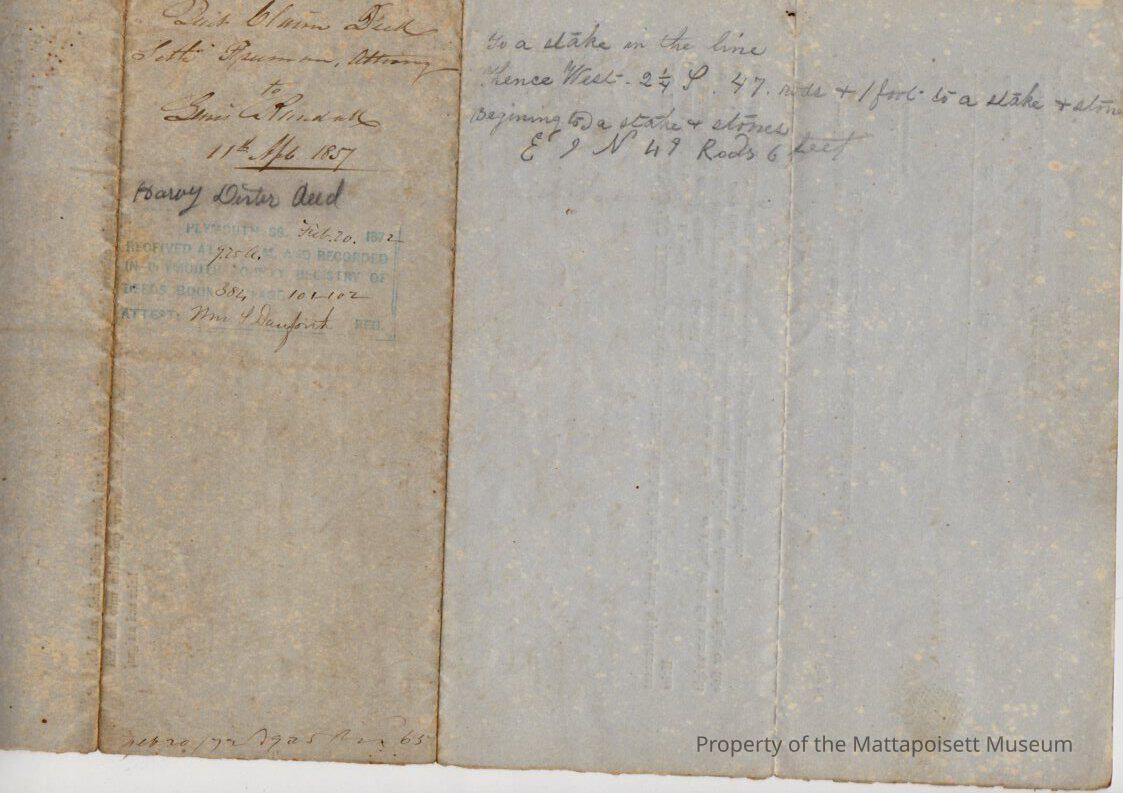 Quit Claim Deed
Seth Freeman, Attorney
to
Lewis C. Randall
11th Apl 1857
Harvy Dexter Deed
PLYMOUTH SS. Feb. 20. 1872
RECEIVED AT 9.25 A. M. AND RECORDED
IN PLYMOUTH COUNTY REGISTRY OF
DEEDS BOOK 384 PAGE 101-102
ATTEST: Wm S Danforth REG.
to a stake in the line
thence West - 2¼ S. 47. rods + 1 foot to a stake + stone
Begining to a stake + stones
E 9 N 49 Rods 6 feet
Property of the Mattapoisett Museum